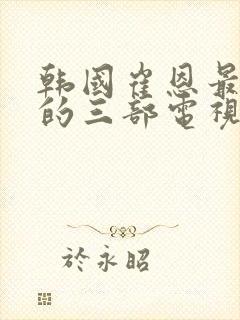 韩國崔恩最
的三部電視
於永昭